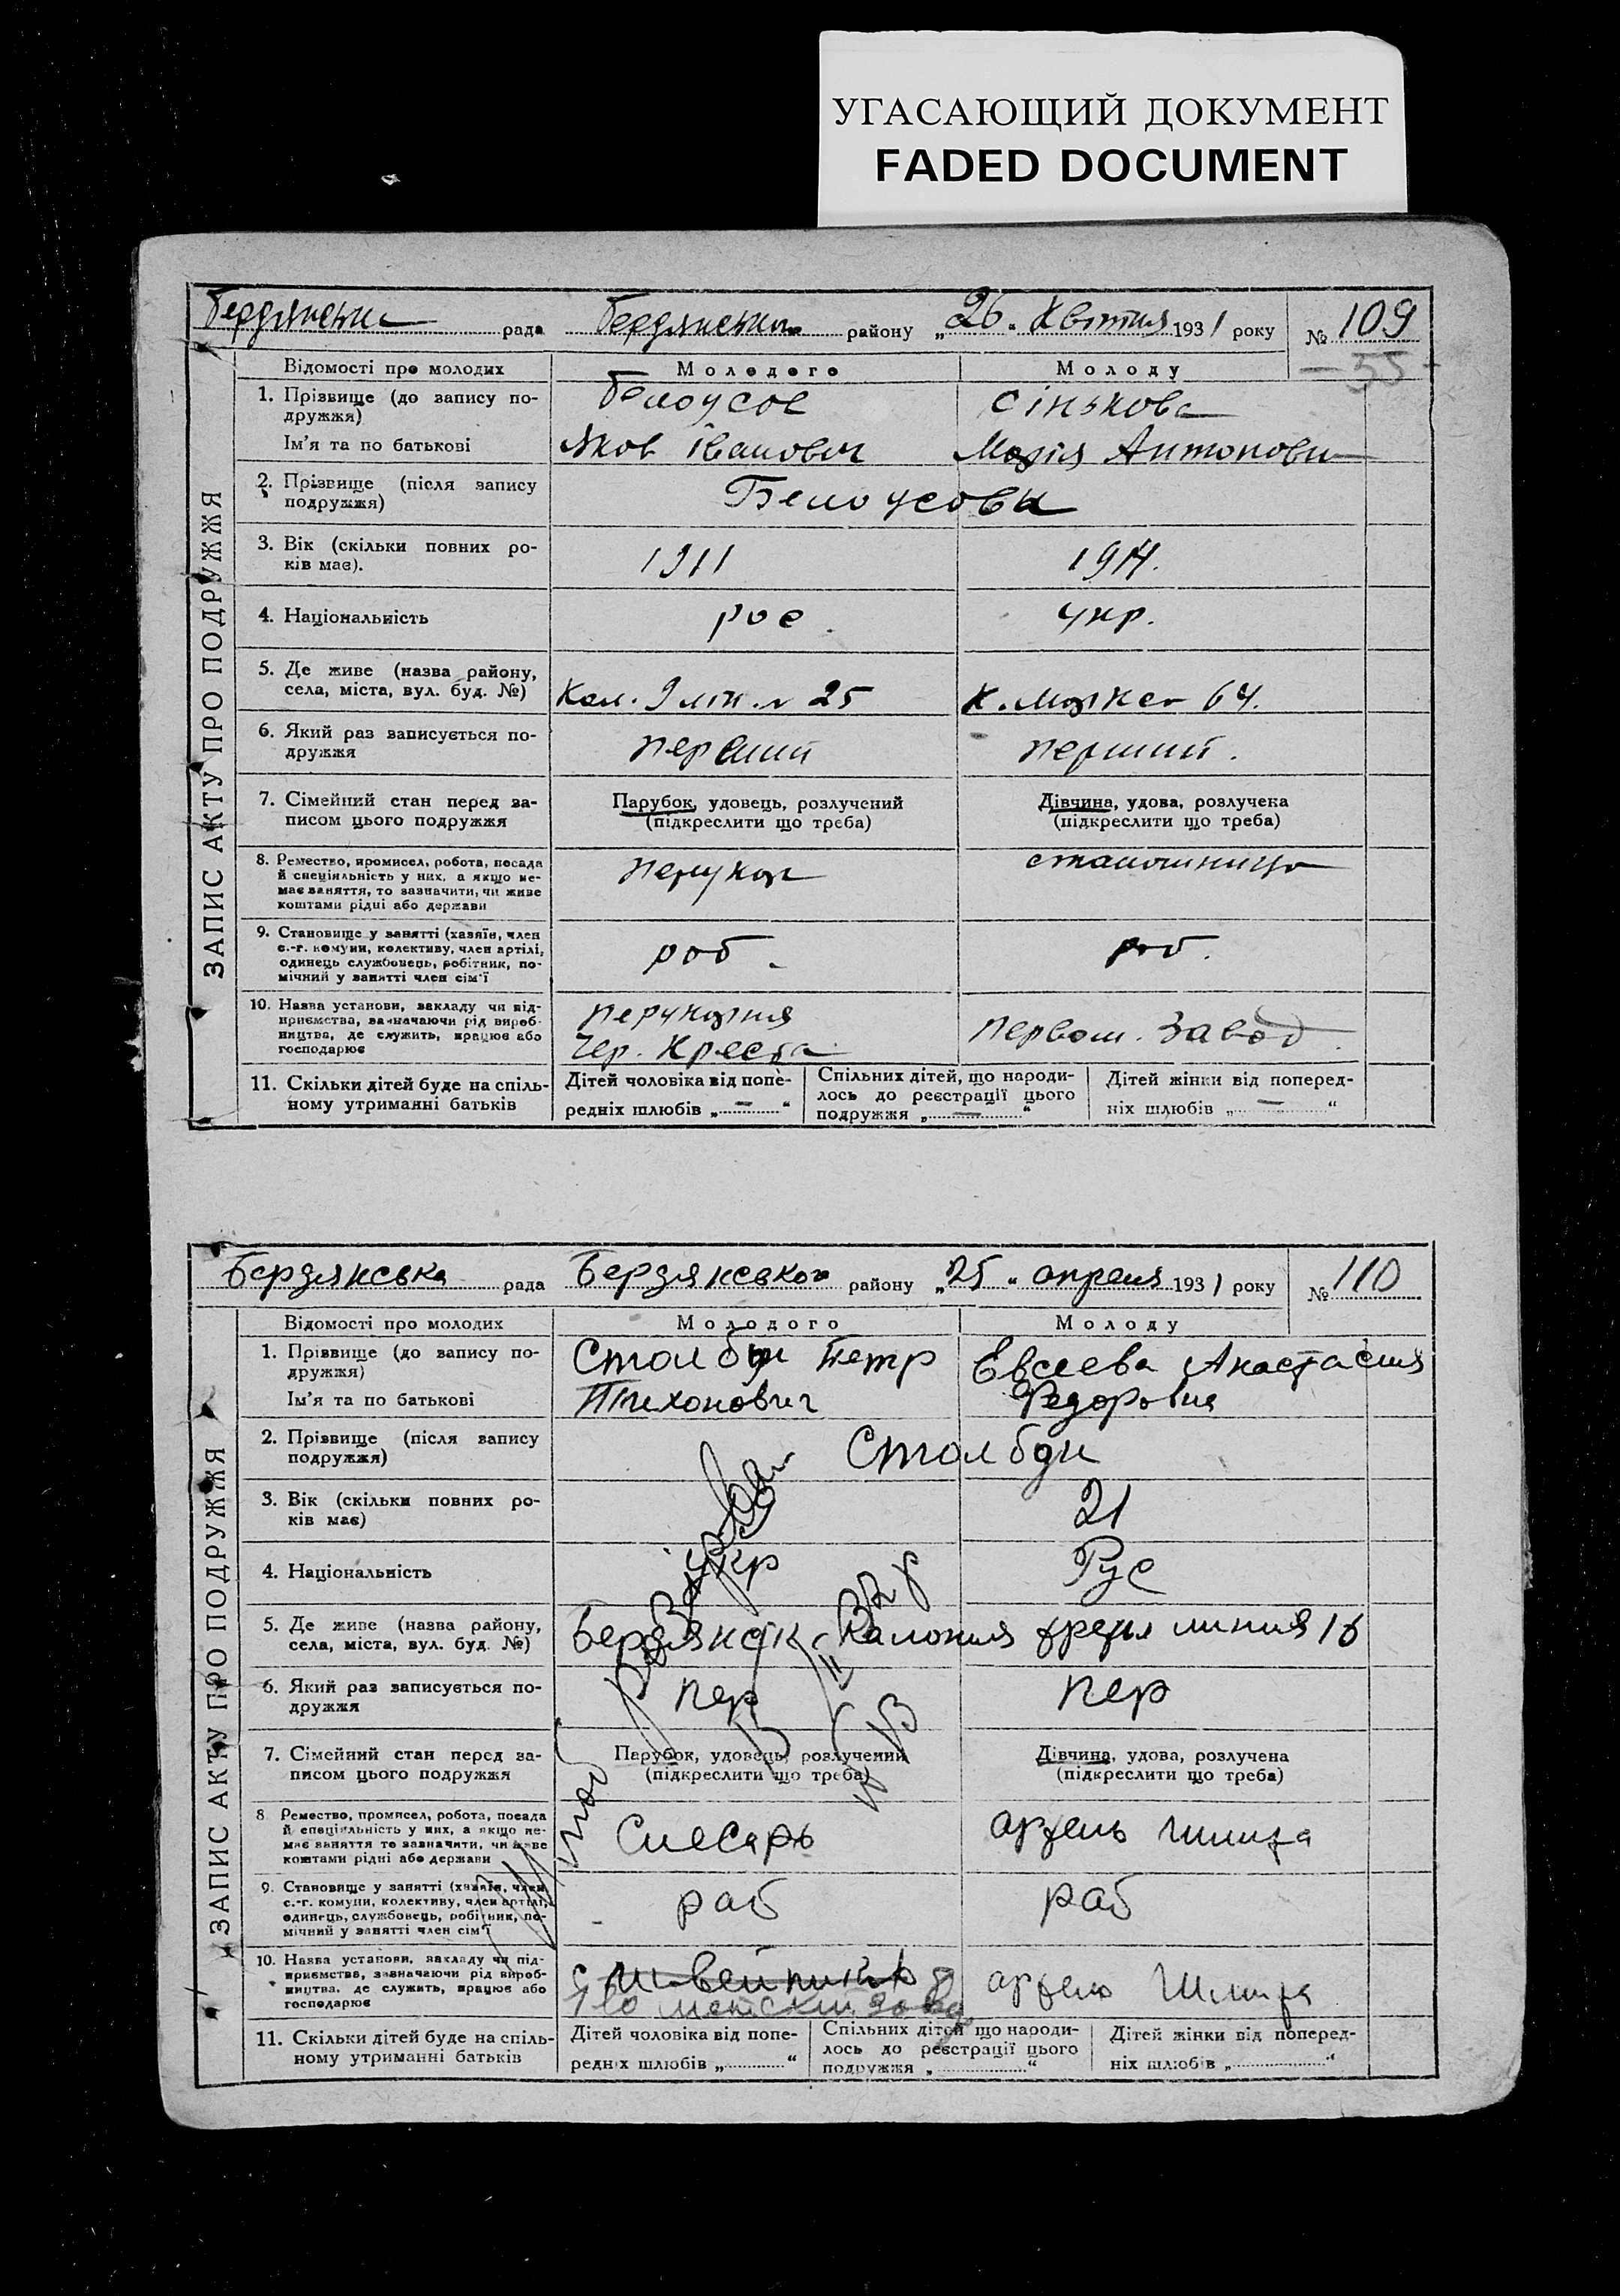 УГАСАЮЩИЙ ДОКУМЕНТ
FADED DOCUMENT
рада району „26“ Квітня 1931 року № 109
55
ЗАПИС АКТУ ПРО ПОДРУЖЖЯ
Відомості про молодих Молодого Молоду
1. Прізвище (до запису по-
дружжя) Белоусов Сінькова
Ім’я та по батькові Яков Іванович Марія Антоновн
2. Прізвище (після запису
подружжя) Белоусови
3. Вік (скільки повних ро-
ків має). 1911
4. Національність рос. укр.
5. Де живе (назва району,
села, міста, вул. буд. №) Кол. 25 К. Маркса 64.
6. Який раз записується по-
дружжя первий перший.
7. Сімейний стан перед за-
писом цього подружжя
Парубок, удовець, розлучений
(підкреслити що треба)
Дівчина, удова, розлучека
(підкреслити що треба)
8. Ремество, промисел, робота, посада
й спеціяльність у них, а якщо не-
має заняття, то зазначити, чи живе
коштами рідні або держави
перукар станошниця
9. Становище у занятті (хазяїн, член
с.-г. комуни, колективу, член артілі,
одинець службовець, робітник, по-
мічний у занятті член сім’ї
роб. роб.
10. Назва установи, закладу чи під-
приємства, зазначаючи рід вироб-
ництва, де служить, працює або
господарює
перукарня
Чер. Креста Первом. Завод
11. Скільки дітей буде на спіль-
ному утриманні батьків
Дітей чоловіка від попе-
редніх шлюбів „ — “
Спільних дітей, що народи-
лось до реєстрації цього
подружжя „ — “
Дітей жінки від поперед-
ніх шлюбів „ — “
Бердянська рада Бердянського району „25“ апреля 1931 року № 110
ЗАПИС АКТУ ПРО ПОДРУЖЖЯ
Відомості про молодих Молодого Молоду
1. Прізвище (до запису по-
дружжя) Петр Евсеева Анастасия
Ім’я та по батькові Тихонович Федоровна
2. Прізвище (після запису
подружжя)
3. Вік (скільки повних ро-
ків має) 21
4. Національність укр Рус
5. Де живе (назва району,
села, міста, вул. буд. №) Бердянск Калония линия 16
6. Який раз записується по-
дружжя пер пер
7. Сімейний стан перед за-
писом цього подружжя
Парубок, удовець, розлучений
(підкреслити що треба)
Дівчина, удова, розлучена
(підкреслити що треба)
8. Ремество, промисел, робота, посада
й спеціяльність у них, а якщо не-
має заняття то зазначити, чи живе
коштами рідні або держави
Слесарь артель
9. Становище у занятті (хазяїн, член
с.-г. комуни, колективу, член артілі,
одинець, службовець, робітник, по-
мічний у занятті член сім’ї
раб раб
10. Назва установи, закладу чи під-
приємства, зазначаючи рід вироб-
ництва, де служить, працює або
господарює
11. Скільки дітей буде на спіль-
ному утриманні батьків
Дітей чоловіка від попе-
редніх шлюбів „ “
Спільних дітей що народи-
лось до реєстрації цього
подружжя „ “
Дітей жінки від поперед-
ніх шлюбів „ “